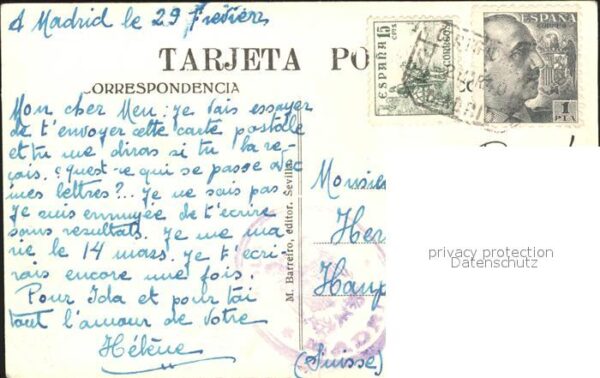 A Madrid le 29 Fevières
TARJETA PO
CORRESPONDENCIA
Mon cher Meu: je vais essayer
de t'envoyer cette carte postale
et tu me diras si tu la re-
çois. Quest-ce qui se passe avec
mes lettres?... Je ne sais pas
Je suis ennuyée de t'ecrire
sans resultats. Je me ma
rie le 14 mars. Je t'ecri-
rais encore une fois.
Pour Ida et pour toi
tout l'amour de votre
Hélène
M. Barreiro, editor. Sevilla
ESPAÑA
15
CTS
CORREOS
ESPAÑA
CORREOS
1
PTA
Monsieu
Her
Haup
(Suisse)
privacy protection
Datenschutz